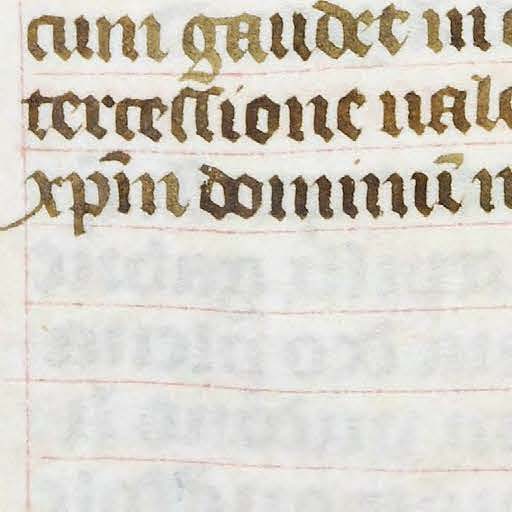 cum gaudet in
tercessione uale
xp̄m dominū n